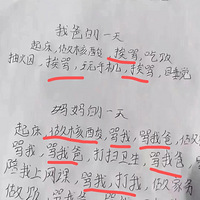 我爸的一天
起床,做核酸,挨骂,吃饭
抽大因,挨骂,玩手机,挨骂,睡觉
妈妈的一天
起床,做核酸,骂我,骂我爸,做
饭,骂我爸,打扫卫生,骂我爸
陪我上网课,骂我,打我,做家务
做饭,骂我爸